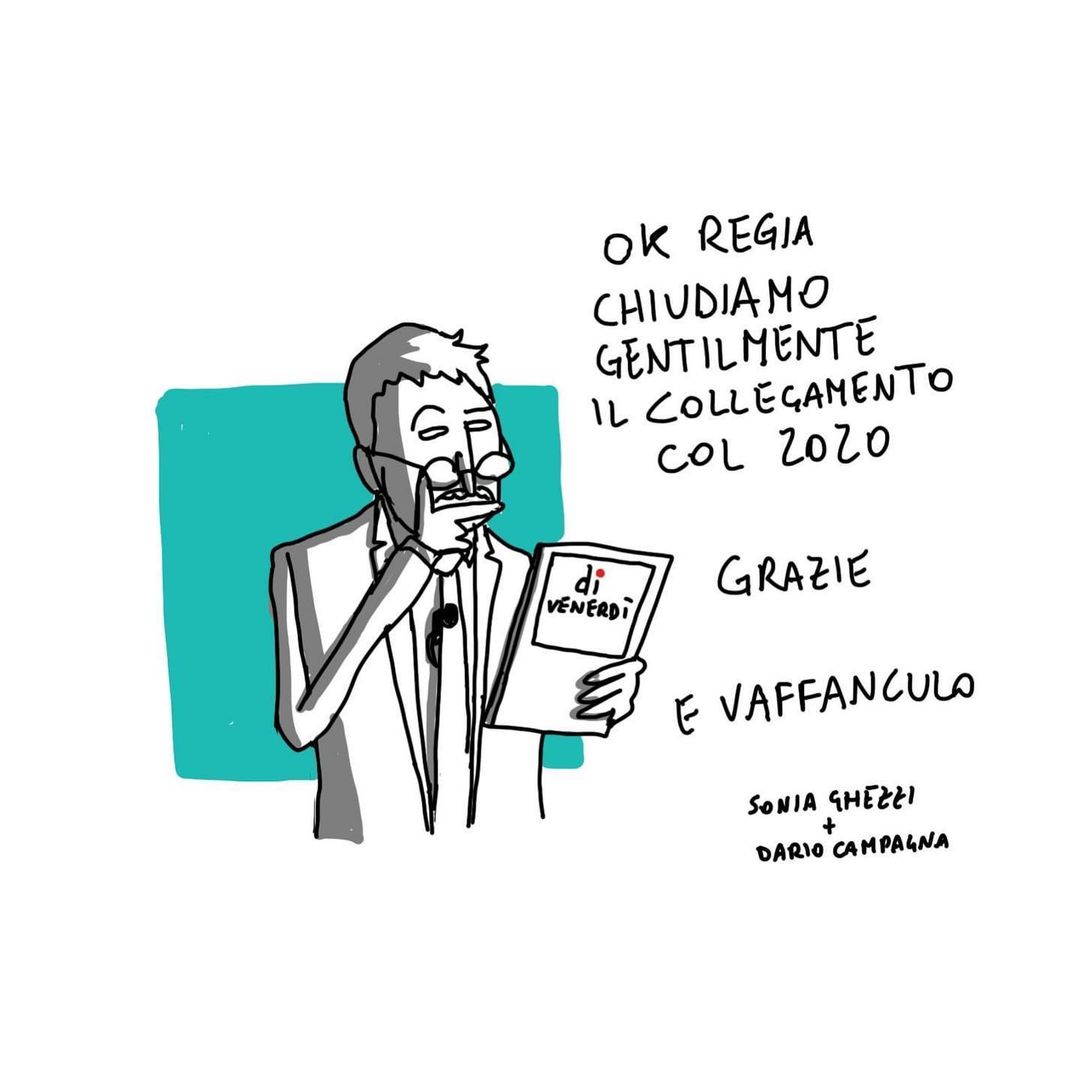 OK REGIA
CHIUDIAMO
GENTILMENTE
IL COLLEGAMENTO
COL 2020
GRAZIE
E VAFFANCULO
di
VENERDÌ
SONIA GHEZZI
+
DARIO CAMPAGNA